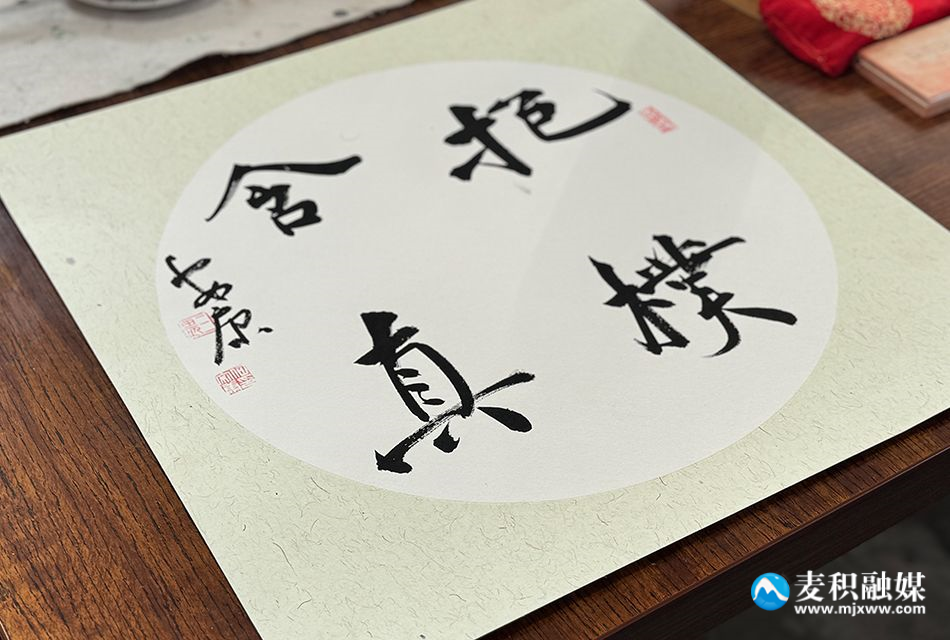 抱樸
含真
麦积融媒
www.mjxww.com